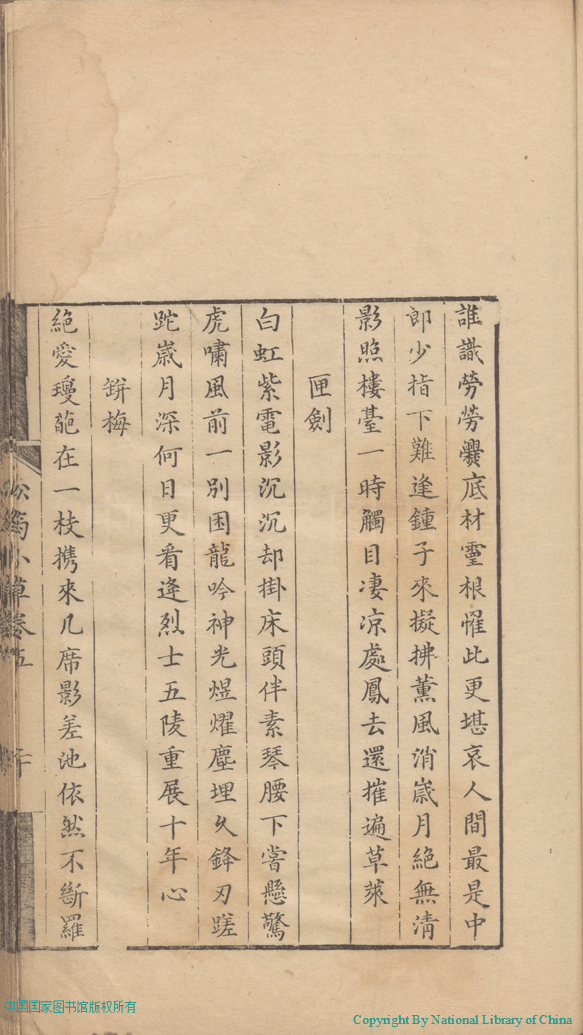 誰識勞勞爨底材靈根罹此更堪哀人間最是中
郎少指下難逢鍾子來擬拂薰風消歲月絕無清
影照樓臺一時觸目凄涼處鳳去還摧遍草萊
匣劍
白虹紫電影沉沉却掛床頭伴素琴腰下嘗懸驚
虎嘯風前一別困龍吟神光煜耀塵埋久鋒刃蹉
跎歲月深何日更看逢烈士五陵重展十年心
缾梅
絕愛瓊葩在一枝携來几席影差池依然不斷羅
小草卷五
中国国家图书馆版权所有
Copyright By National Library of China